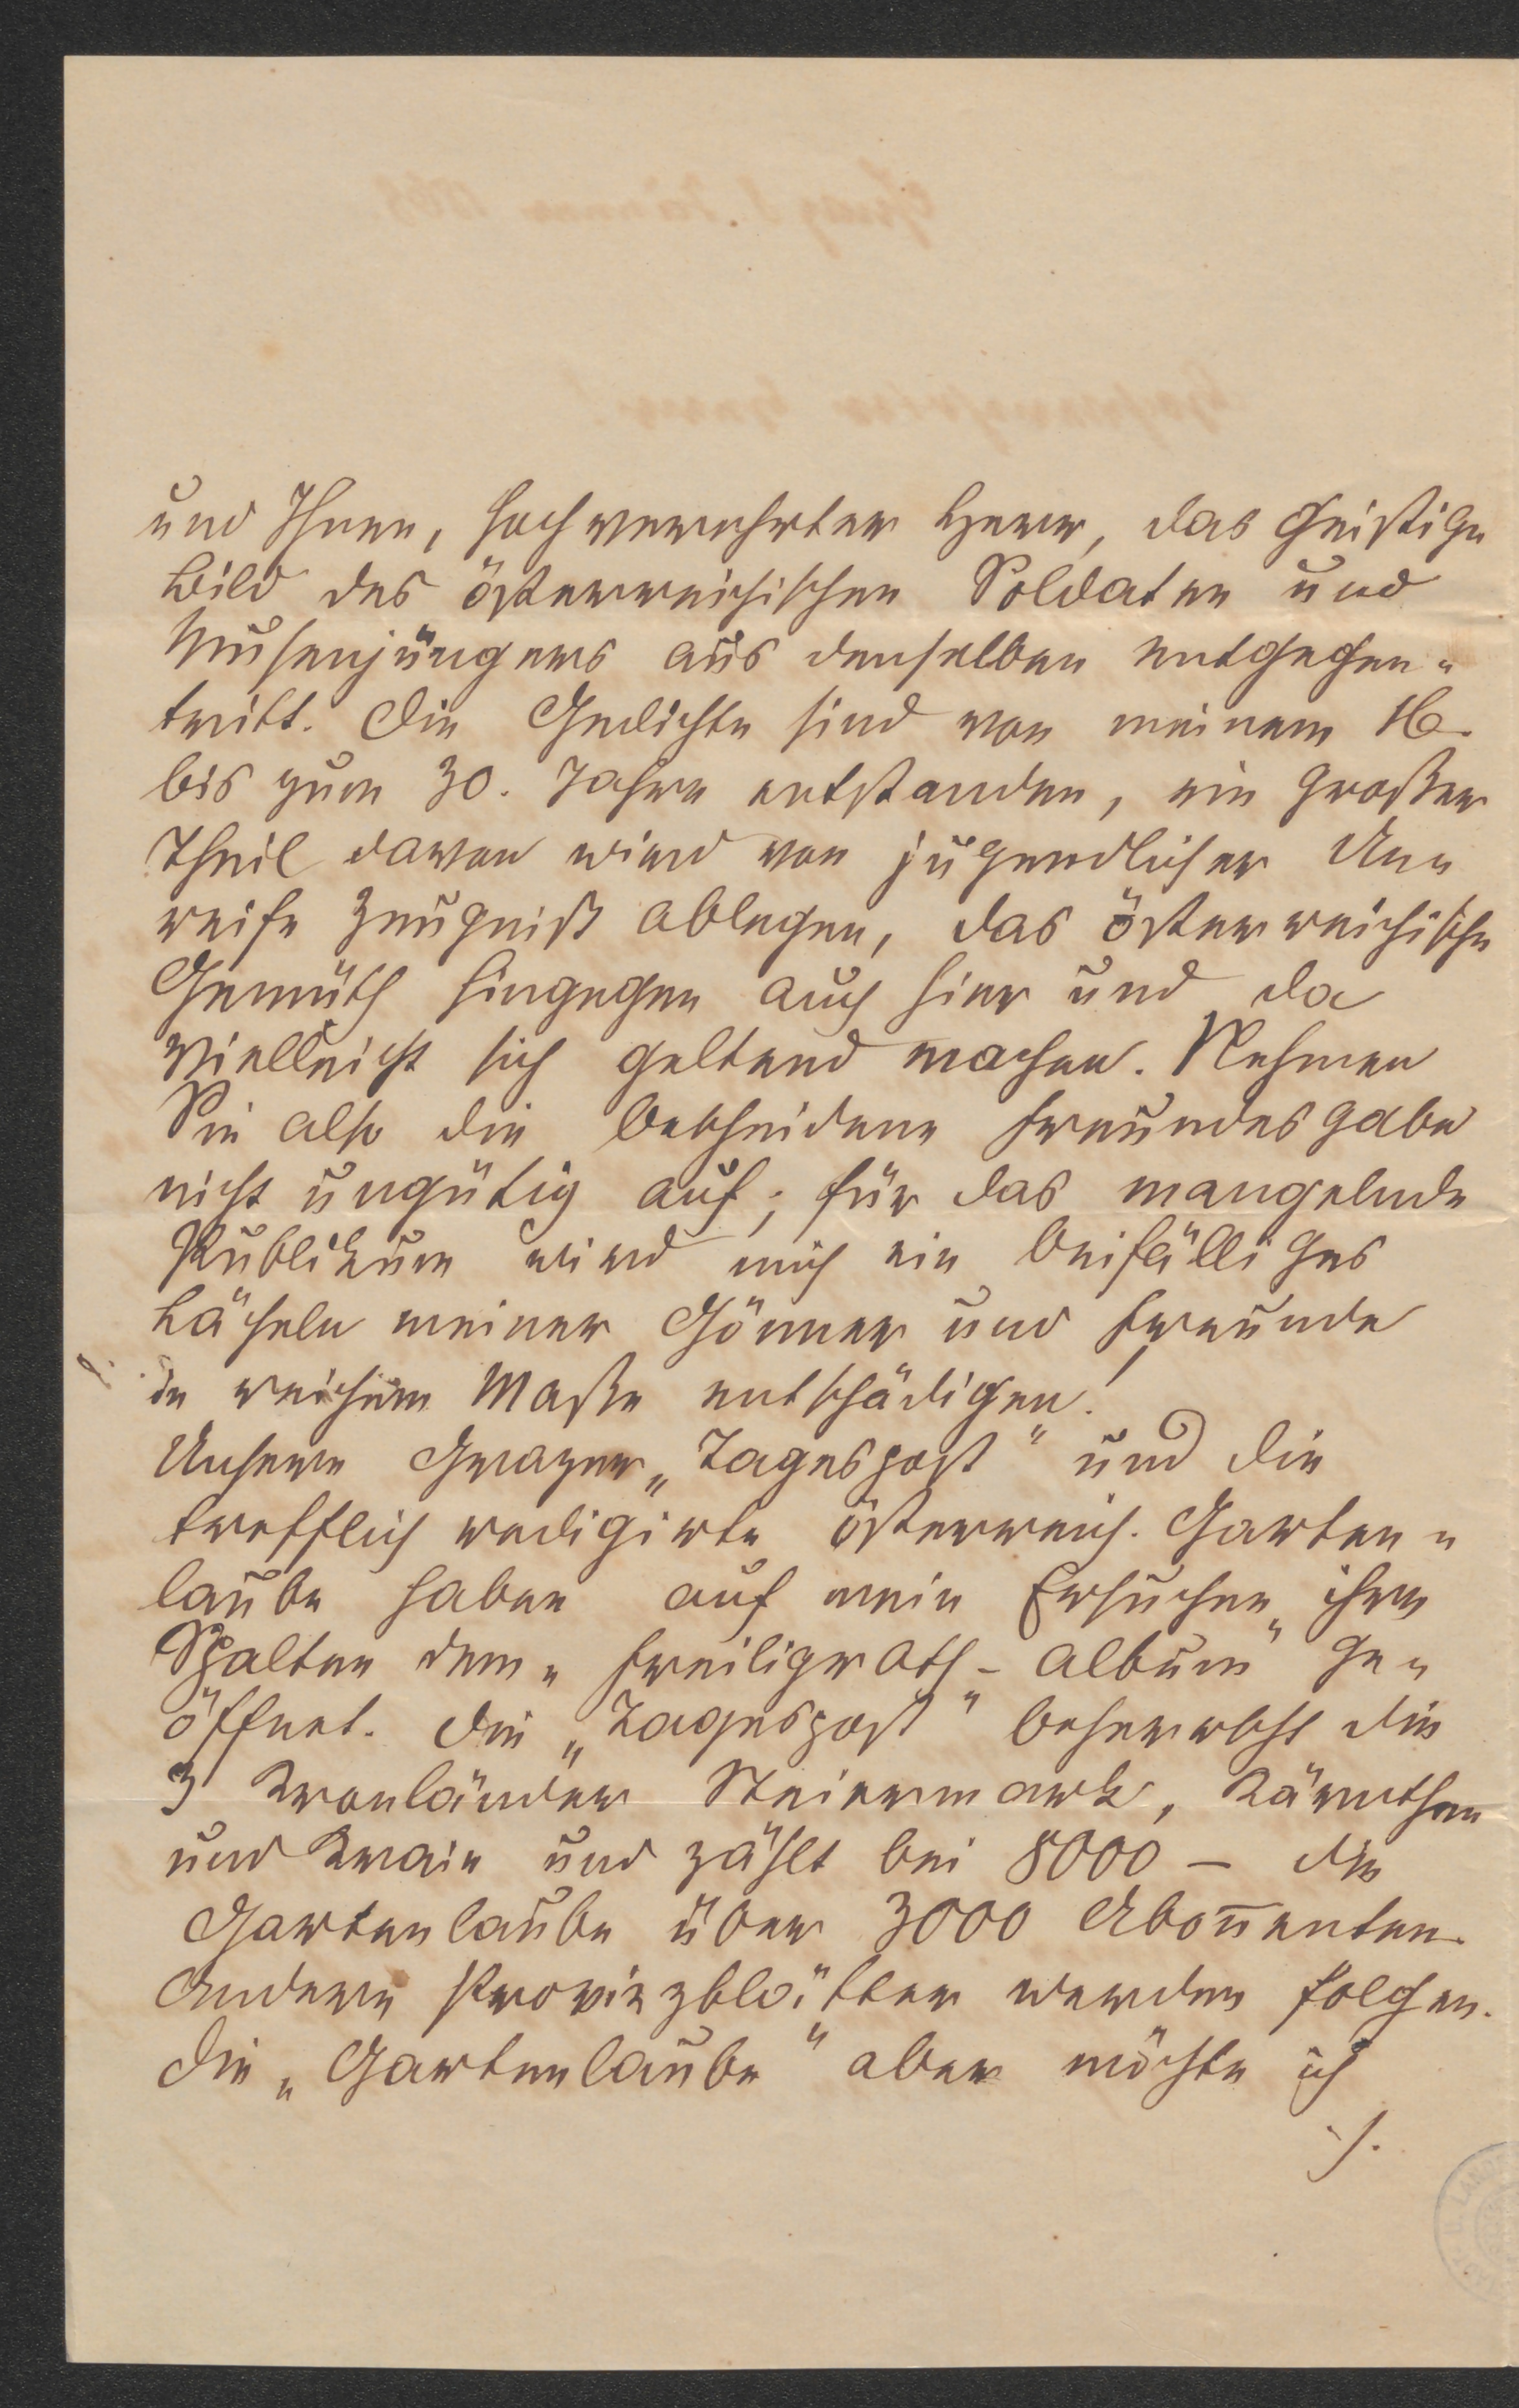 und Ihnen, hochverehrter Herr, das geistige
Bild des österreichischen Soldaten und
Musenjüngers aus denselben entgegen-
tritt. Die Gedichte sind von meinem 16.
bis zum 30. Jahre entstanden, ein großer
Theil davon wird von jugendlicher Un-
reife Zeugniß ablegen, das österreichische
Gemüth hingegen auch hier und da
vielleicht sich geltend machen. Nehmen
Sie also die bescheidene Freundesgabe
nicht ungütig auf; für das mangelnde
Publikum wird mich ein beifälliges
Lächeln meiner Gönner und Freunde
in reichem Maße entschädigen!
Unsere Grazer „Tagespost" und die
trefflich redigirte österreich. Garten-
laube haben auf mein Ersuchen ihre
Spalten dem „Freiligrath-Album" ge-
öffnet. Die „Tagespost" beherrscht die
3 Kronländer Steiermark, Kärnthen
und Krain und zählt bei 8000 – die
Gartenlaube über 3000 Abon̄enten.
Andere Provinzblätter werden folgen.
Die „Gartenlaube" aber möchte ich
./.